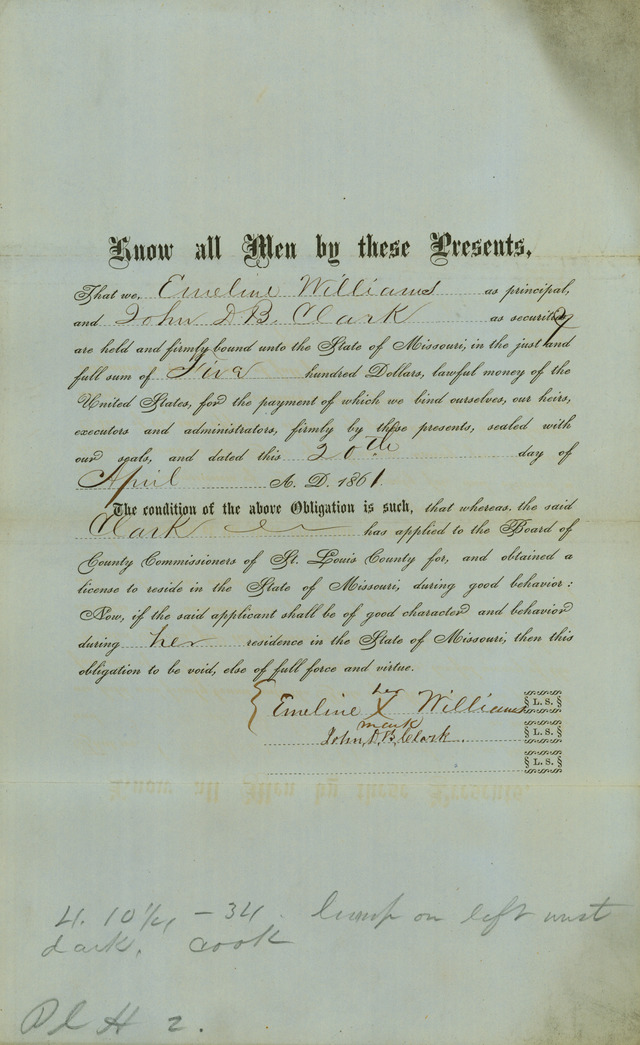 Know all Men by these Presents,
That we, Emeline Williams as principal,
and John D. B. Clark as security
are held and firmly bound unto the State of Missouri, in the just and
full sum of Five hundred Dollars, lawful money of the
United States, for the payment of which we bind ourselves, our heirs,
executors and administrators, firmly by these presents, sealed with
our seals, and dated this 20th day of
April A. D. 1861.
The condition of the above Obligation is such, that whereas, the said
Clark has applied to the Board of
County Commissioners of St. Louis County for, and obtained a
license to reside in the State of Missouri, during good behavior:
Now, if the said applicant shall be of good character and behavior
during her residence in the State of Missouri, then this
obligation to be void, else of full force and virtue.
her
Emeline X Williams § L. S. §
mark
John D. B. Clark. § L. S. §
§ L. S. §
4. 10 1/4 – 34. lump on left wrist
dark. cook
2.